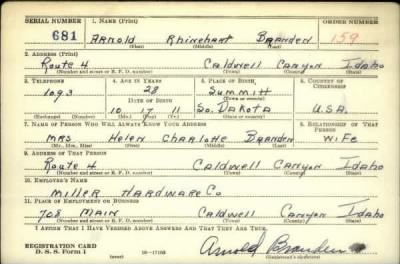 SERIAL NUMBER 1. NAME (Print) ORDER NUMBER
681 Arnold Rhinehart Branden 159
(First) (Middle) (Last)
2. ADDRESS (Print)
Route 4 Caldwell Canyon Idaho
(Number and street or R. F. D. number) (Town) (County) (State)
3. TELEPHONE 4. AGE IN YEARS 5. PLACE OF BIRTH 6. COUNTRY OF CITIZENSHIP
1093 28 Summitt
DATE OF BIRTH (Town or county)
10 17 11 So. Dakota U.S.A.
(Exchange) (Number) (Mo.) (Day) (Yr.) (State or country)
7. NAME OF PERSON WHO WILL ALWAYS KNOW YOUR ADDRESS 8. RELATIONSHIP OF THAT PERSON
Mrs Helen Charlotte Branden Wife
(Mr., Mrs., Miss) (First) (Middle) (Last)
9. ADDRESS OF THAT PERSON
Route 4 Caldwell Canyon Idaho
(Number and street or R. F. D. number) (Town) (County) (State)
10. EMPLOYER'S NAME
Miller Hardware Co
11. PLACE OF EMPLOYMENT OR BUSINESS
708 Main Caldwell Canyon Idaho
(Number and street or R. F. D. number) (Town) (County) (State)
I AFFIRM THAT I HAVE VERIFIED ABOVE ANSWERS AND THAT THEY ARE TRUE.
REGISTRATION CARD
D. S. S. Form 1 (over) Arnold Branden
(Registrant's signature)